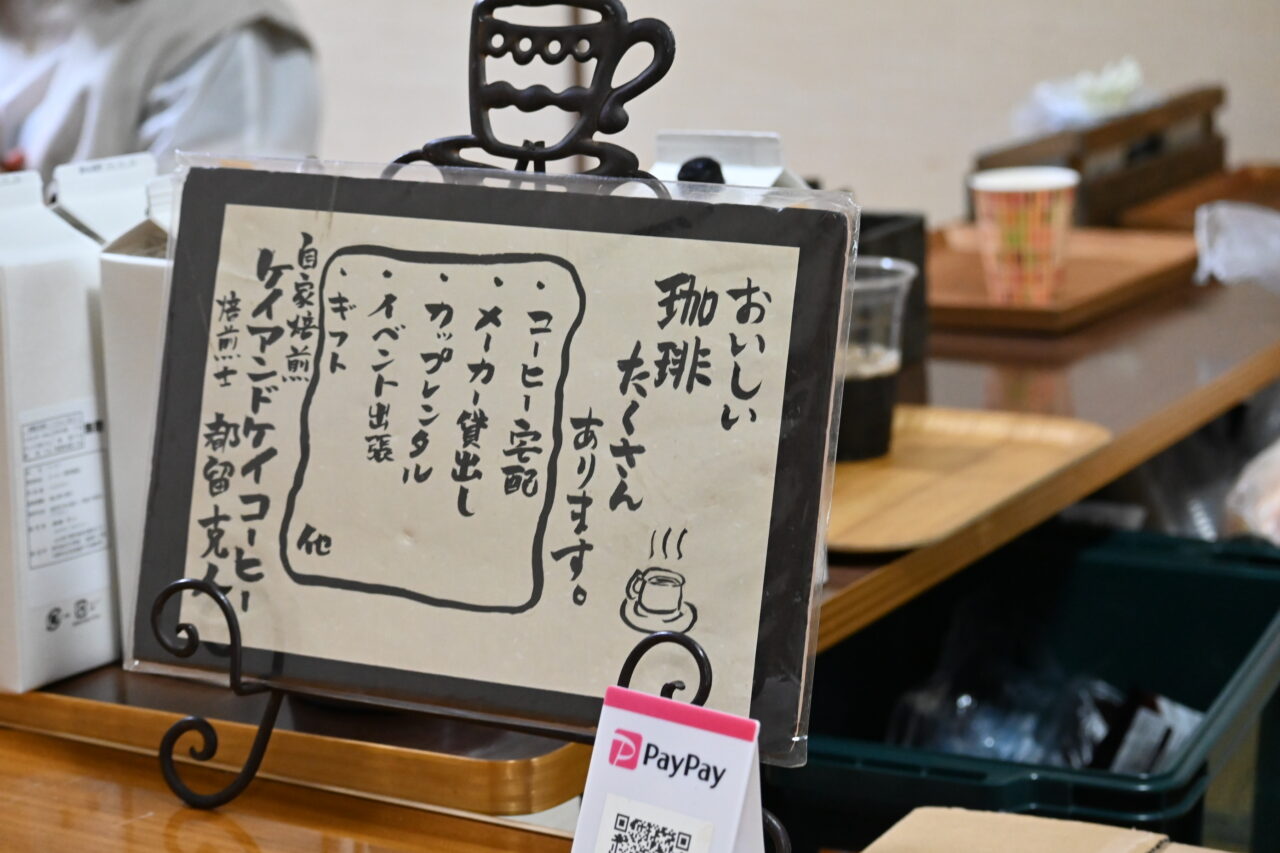 おいしい
珈琲
たくさん
あります。
・コーヒー宅配
・メーカー貸出し
・カップレンタル
・イベント出張
・ギフト
他
自家焙煎
ケイアンドケイコーヒー
焙煎士 都留克人
PayPay